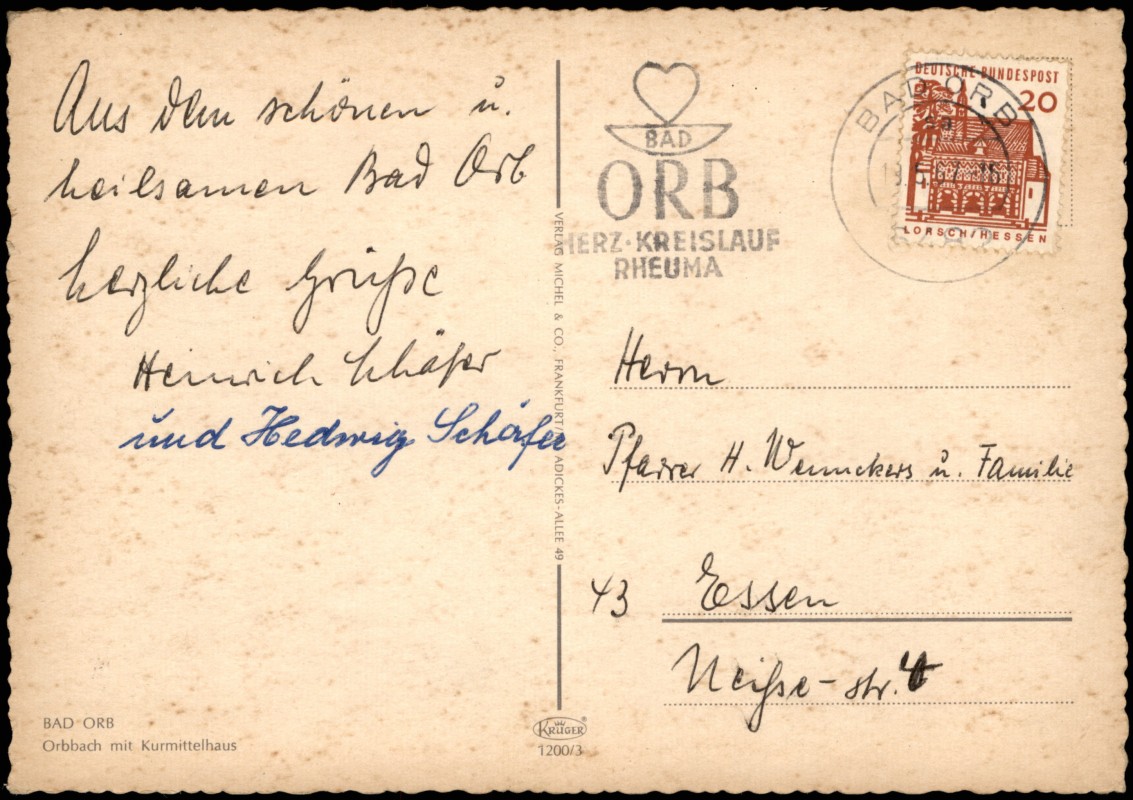 Aus dem schönen u.
heilsamen Bad Orb
herzliche Grüße
Heinrich Schäfer
und Hedwig Schäfer
BAD ORB
Orbbach mit Kurmittelhaus
VERLAG MICHEL & CO., FRANKFURT/ ADICKES-ALLEE 49
KRÜGER
1200/3
BAD
ORB
HERZ·KREISLAUF
RHEUMA
BAD ORB
DEUTSCHE BUNDESPOST
20
LORSCH/HESSEN
Herrn
Pfarrer H. Wennekers u. Familie
43 Essen
Neiße-str. 4